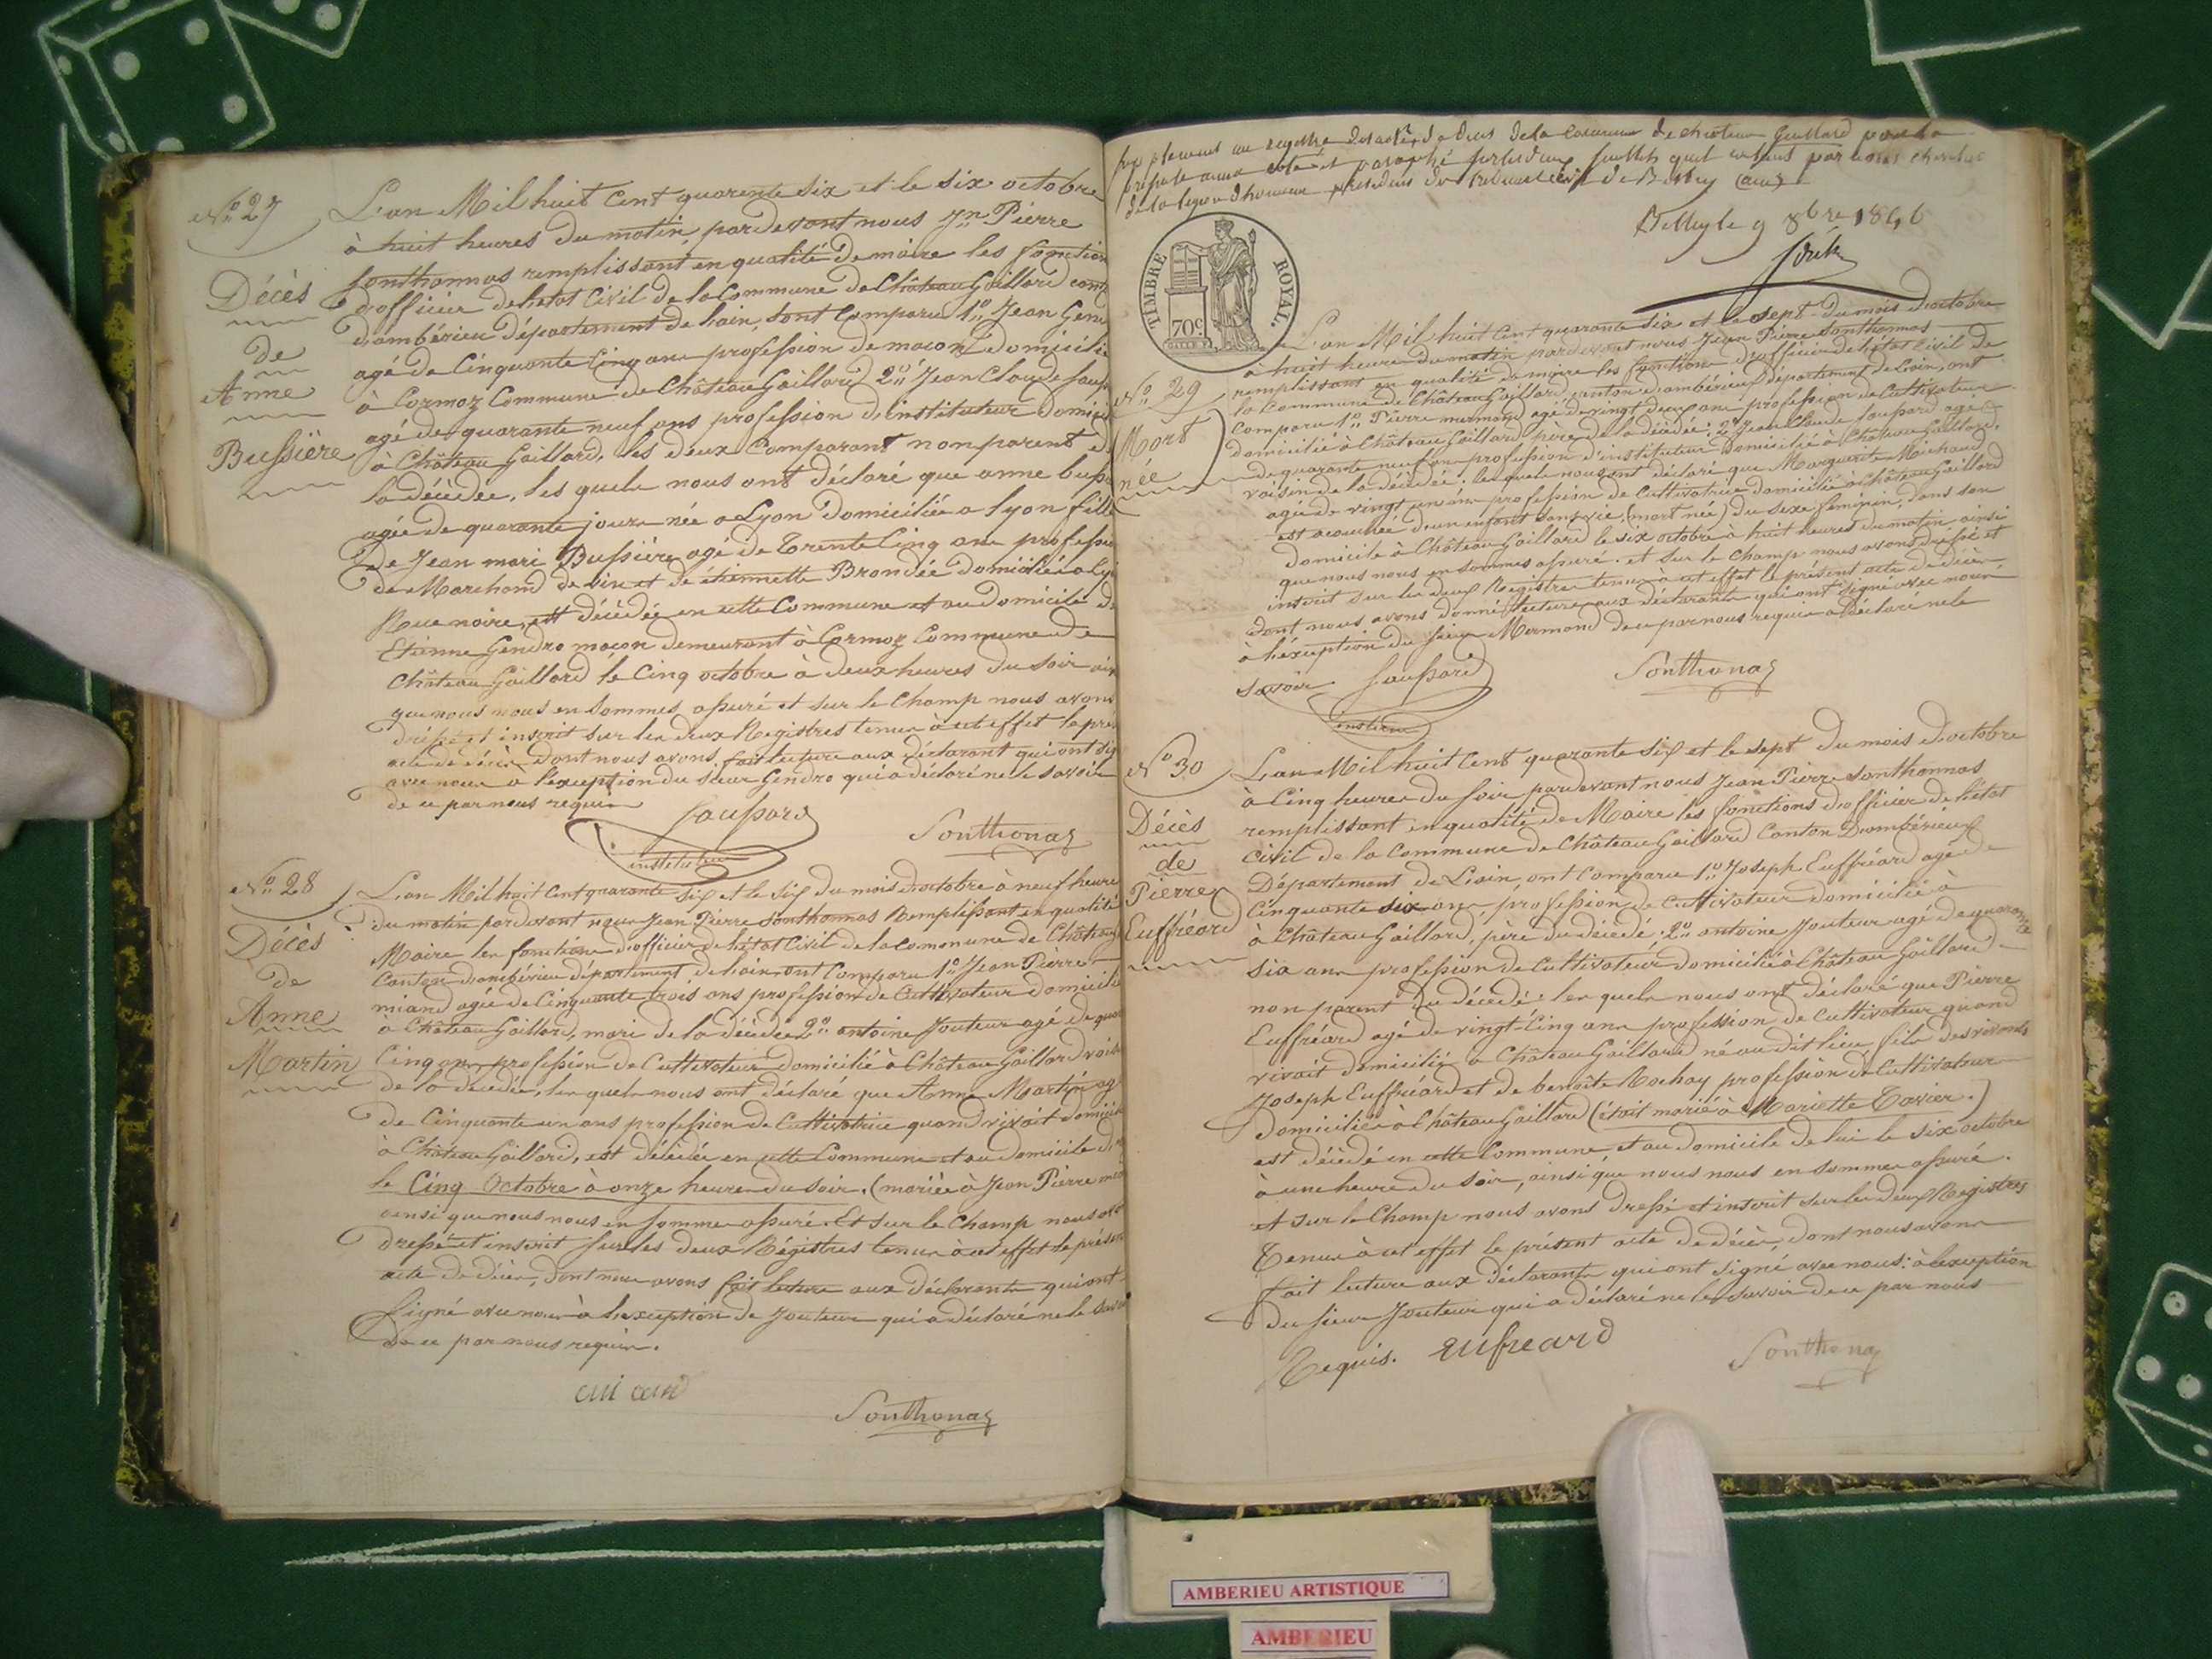 N.o 27
Décès
de
Anne
Bussière
L'an Mil huit Cent quarante six et le six octobre
à huit heures du matin, pardevant nous Jn Pierre
Sonthonnas remplissant en qualité de maire les fonction
d'officier de l'état Civil de la Commune de Château Gaillard
d'ambérieu Département de l'ain, sont Comparu 1.o Jean Gend
agé de Cinquante Cinq ans profession de maçon domicilié
à Cormoz Commune de Château Gaillard 2.o Jean Claude
agé de quarante neuf ans profession d'instituteur domici
à Château Gaillard, les deux Comparant non parent de
la décédée, les quels nous ont déclaré que anne buss
agée de quarante jours née a Lyon Domiciliée a lyon fille
de Jean mari Bussière agé de Trente Cinq ans profession
de Marchand de vin et de étiennette Brondée domiciliée a
Rue noire, est décédée en cette Commune et au domicile de
Etienne Gendro maçon demeurant à Cormoz Commune de
Château Gaillard le Cinq octobre à deux heures du soir
que nous nous en sommes assuré et sur le Champ nous avons
dressé et inscrit sur les deux Registres tenus à cet effet le
acte de décès dont nous avons fait lecture aux déclarant qui ont
avec nous à l'exception du sieur Gendro qui a déclaré ne le savoir
de ce par nous requis
instituteur
Sonthonas
N.o 28
Décès
de
Anne
Martin
L'an Mil huit Cent quarante six et le six du mois d'octobre à neuf heure
du matin pardevant nous Jean Pierre Sonthonnas Remplissant en qualité
Maire les fonctions d'officier de l'état Civil de la Commune de Château
Canton d'ambérieu département de l'ain ont Comparu 1.o Jean Pierre
miand agée de Cinquante trois ans profession de Cultivateur domicilié
à Château Gaillard, mari de la décédée 2.o antoine Jouteur agé de
Cinq ans profession de Cultivateur domicilié à Château Gaillard
de la décédée, les quels nous ont déclaré que Anne Martin
de Cinquante un ans profession de Cultivatrice quand vivait
à Château Gaillard, est décédée en cette Commune et au domicile
le Cinq Octobre à onze heures du soir. (mariée à Jean Pierre
ainsi que nous nous en somme assuré. Et sur le Champ nous
dressé et inscrit sur les deux Régistres tenus à cet effet le
acte de décès, dont nous avons fait lecture aux déclarants qui ont
Signé avec nous à l'exception de Jouteur qui a déclaré ne le
de ce par nous requis.
Sonthonas
de la commune de château Gaillard
Belley le 9 8bre 1846
TIMBRE ROYAL.
70c
N.o 29
Mort
née
L'an Mil huit Cent quarante six et le sept du mois d'octobre
à huit heure du matin pardevant nous Jean Pierre Sonthonnas
remplissant en qualité de maire les fonctions d'officier de l'état Civil de
la Commune de Château Gaillard, canton d'ambérieux département de l'ain, ont
Comparu 1.o Pierre mermand agé de vingt deux ans profession de Cultivateur
domicilié à Château Gaillard père de la décédée: 2.o Jean Claude agé
de quarante neuf ans profession d'instituteur domicilié à Château Gaillard,
voisin de la décédée: lesquels nous ont déclaré que Marguerite Michaud
agée de vingt un ans profession de Cultivatrice domicilié à Château Gaillard
est acouchée d'un enfant sans vie, (mort née) du sexe féminin, dans son
domicile à Château Gaillard le six octobre à huit heures du matin, ainsi
que nous nous en sommes assuré. et sur le champ nous avons dressé et
inscrit sur les deux Registres tenus a cet effet le présent acte de décès
dont nous avons donné lecture aux déclarants qui ont signé avec nous
à l'exception du sieur Mermand de ce par nous requis a déclaré ne le
savoir
Sonthonas
N.o 30
Décès
de
Pierre
Euffréard
L'an Mil huit Cent quarante six et le sept du mois d'octobre
à Cinq heures du soir pardevant nous Jean Pierre Sonthonnas
remplissant en qualité de Maire les fonctions d'officier de l'état
civil de la Commune de Château Gaillard Canton D'ambérieux
Département de L'ain, ont Comparu 1.o Joseph Euffréard agé de
Cinquante six ans profession de Cultivateur domicilié à
à Château Gaillard, père du décédé; 2.o antoine Jouteur agé de quarante
six ans profession de Cultivateur domicilié à Château Gaillard
non parent du décédé: les quels nous ont déclaré que Pierre
Euffréard agé de vingt-Cinq ans profession de Cultivateur quand
vivait domicilié à Château Gaillard né au dit lieu fils des vivants
Joseph Euffréard et de benoîte Rochay profession de Cultivateur
Domiciliés à Château Gaillard (était marié à Mariette Tavier.)
est décédé en cette Commune et au domicile de lui le six octobre
à une heure du soir, ainsi que nous nous en sommes assuré.
et sur le Champ nous avons dressé et inscrit sur les deux Registres
Tenus à cet effet le présent acte de décès, dont nous avons
fait lecture aux déclarants qui ont signé avec nous: à l'exception
du sieur Jouteur qui a déclaré ne le savoir de ce par nous
Requis.
Eufreard
Sonthonas
AMBERIEU ARTISTIQUE
AMBERIEU